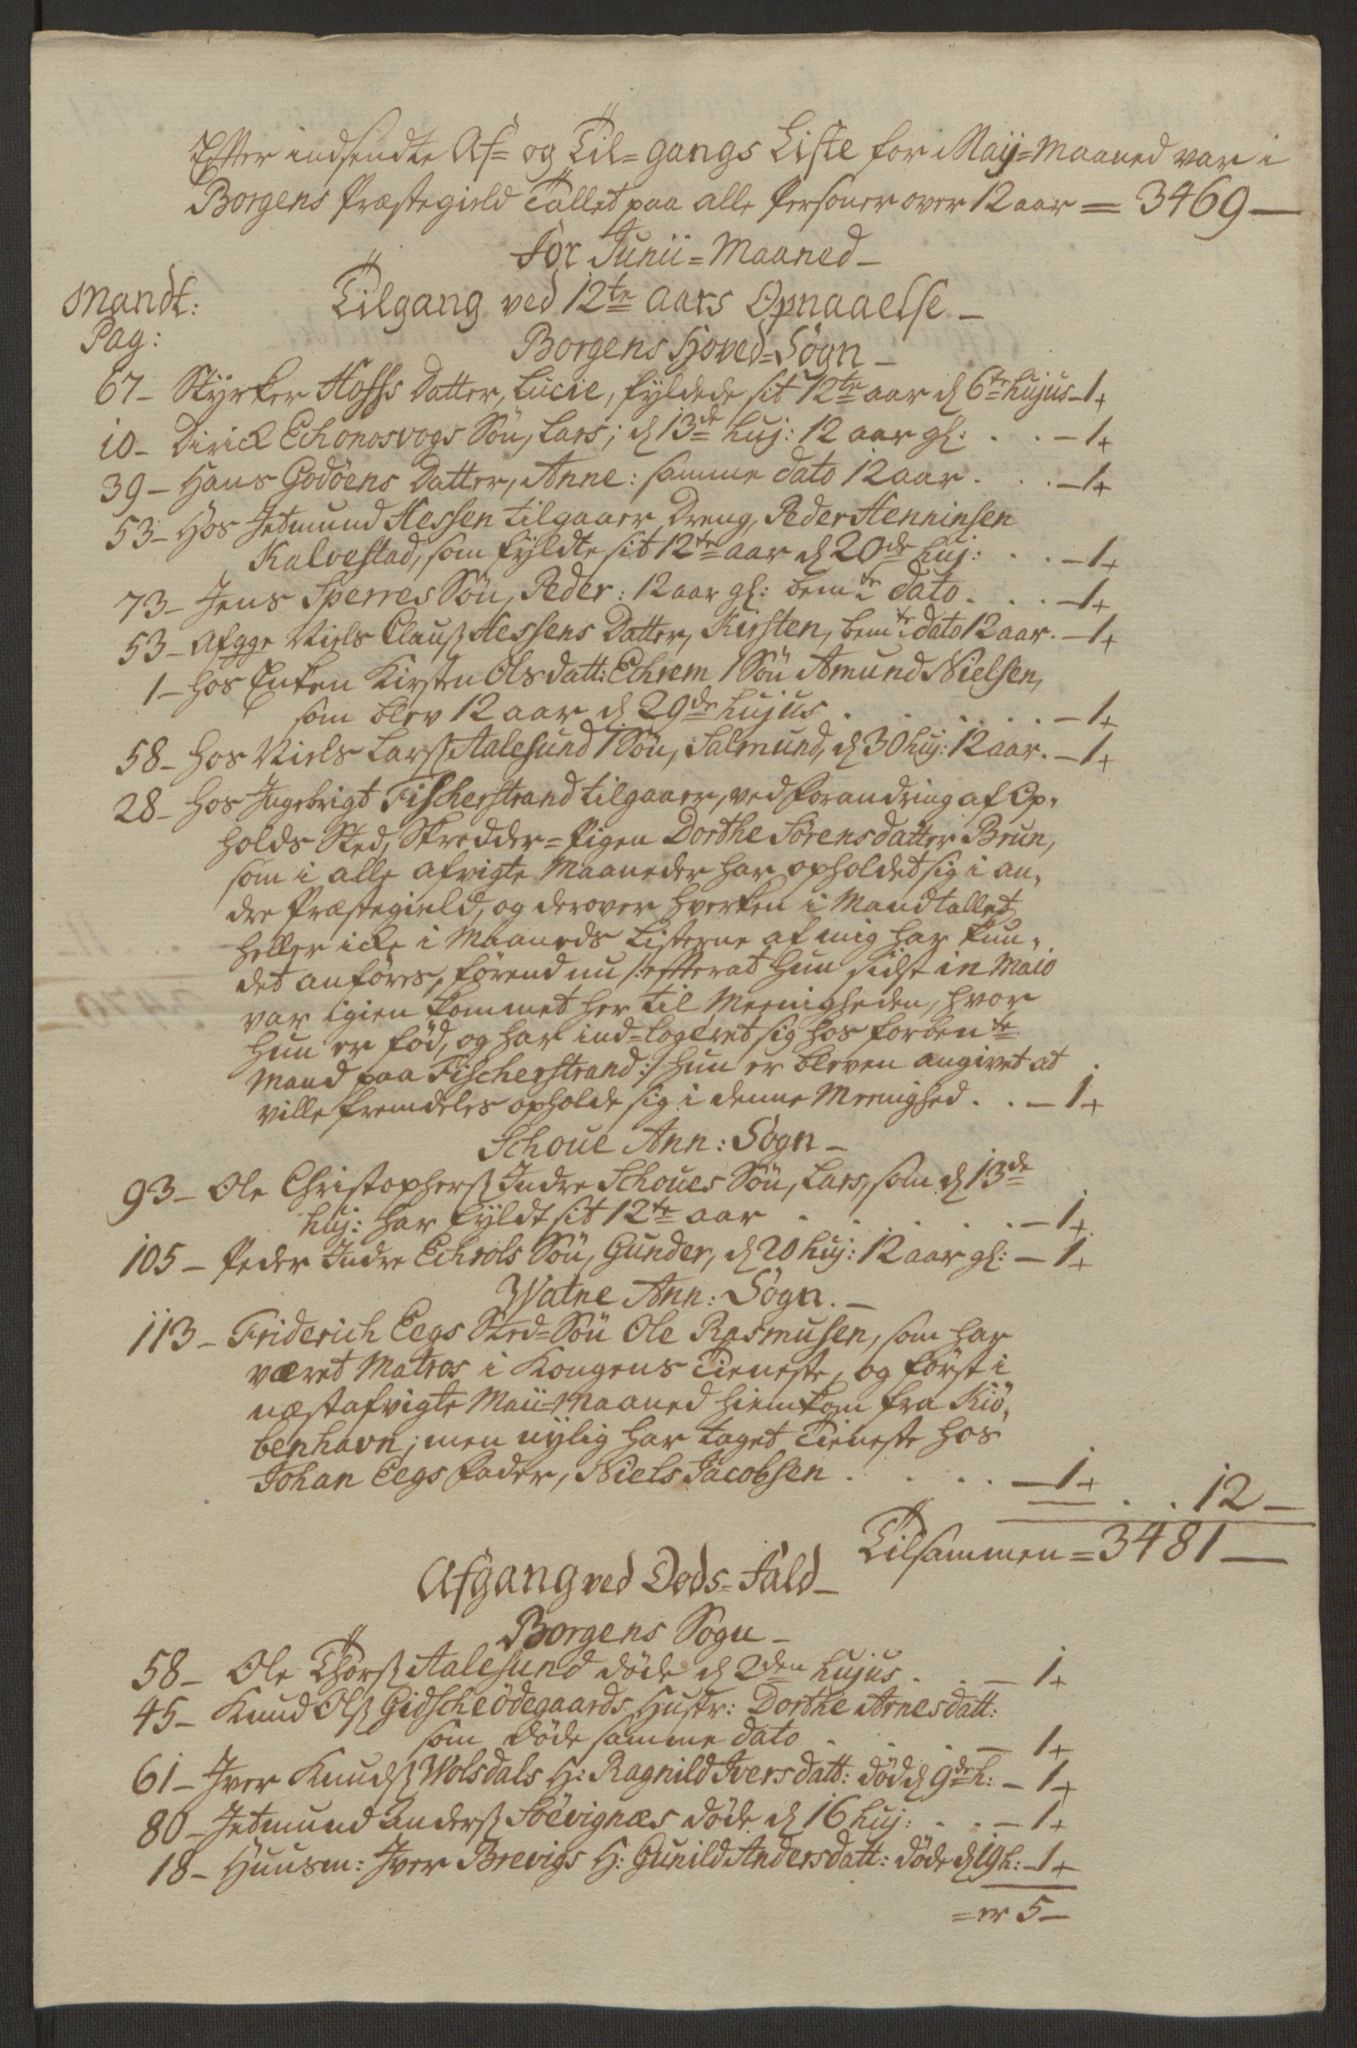 Efter indsendte Af= og Til=gangs Liste for Maij=Maaned var i
Borgens Præstegield Tallet paa alle Personer over 12 aar = 3469 —
For Junii=Maaned —
Mandt: Tilgang ved 12te aars Opnaaelse —
Pag:
Borgens Hoved=Sogn —
67 — Styrker Hoffs Datter, Lucie, fyldede sit 12te aar d 6te hujus — 1+
10 — Dirick Echonosvogs Søn, Lars; d 13de huj: 12 aar gl: . . . — 1+
39 — Hans Godøens Datter, Anne: samme dato 12 aar . . . — 1+
53 — Hos Jetmund Hessen tilgaaer Dreng, Peder Henninsen
Kalvestad, som fyldte sit 12te aar d 20de huj: . . — 1+
73 — Jens Sperres Søn, Peder: 12 aar gl: bemte dato . . . — 1+
53 — Afgge Niels Clauß Hessens Datter, Kirsten, bemte dato 12 aar. — 1+
1 — hos Enken Kirsten Olsdatt: Echrem 1 Søn Amund Nielsen,
som blev 12 aar d 29de hujus . . . . . — 1+
58 — hos Niels Larsß Aalesund 1 Søn, Salmund, d 30 huj: 12 aar. — 1+
28 — hos Ingebrigt Fischerstrand tilgaaer, ved forandring af Op=
holds Sted, Skredder=Pigen Dorthe Sørensdatter Brun,
som i alle afvigte Maaneder har opholdet sig i an=
dre Præstegield, og derover hverken i Mandtallet
heller icke i Maaneds Listerne af mig har kun=
det anføres, førend nu /: efterat hun sidst in Maio
var igien kommet her til Meenigheden, hvor
hun er fød, og har ind=logeret sig hos forbente
Mand paa Fischerstrand :/ hun er bleven angivet at
ville fremdeles opholde sig i denne Meenighed . . — 1+
Schoue Ann: Sogn —
93 — Ole Christophersß Indre Schoues Søn, Lars, som d 13de
huj: har fyldt sit 12te aar . . . . . — 1+
105 — Peder Indre Echrols Søn, Gunder, d 20 huj: 12 aar gl: — 1+
Watne Ann: Sogn. —
113 — Friderich Eegs Sted=Søn Ole Rasmusen, som har
været Matros i Kongens Tieneste, og først i
næstafvigte Maii=Maaned hiemkom fra Kiø=
benhavn; men nylig har taget Tieneste hos
Johan Eegs Fader, Niels Jacobsen . . . . — 1+
. . 12 —
Tilsammen = 3481 —
Afgang ved Døds=Fald —
Borgens Sogn —
58 — Ole Thorsß Aalesund døde d 2den hujus . . — 1+
45 — Knud Olsß Gidscheødegaards Hustr: Dorthe Arnesdatt:
som døde samme dato . . . — 1+
61 — Iver Knudsß Wolsdals H: Ragnild Iversdatt: død d 9de h: — 1+
80 — Jetmund Andersß Søevignæs døde d 16 huj: . . — 1+
18 — Huusm: Iver Brevigs H: Gunild Andersdatt: døde d 19 h: — 1+
= er 5 —